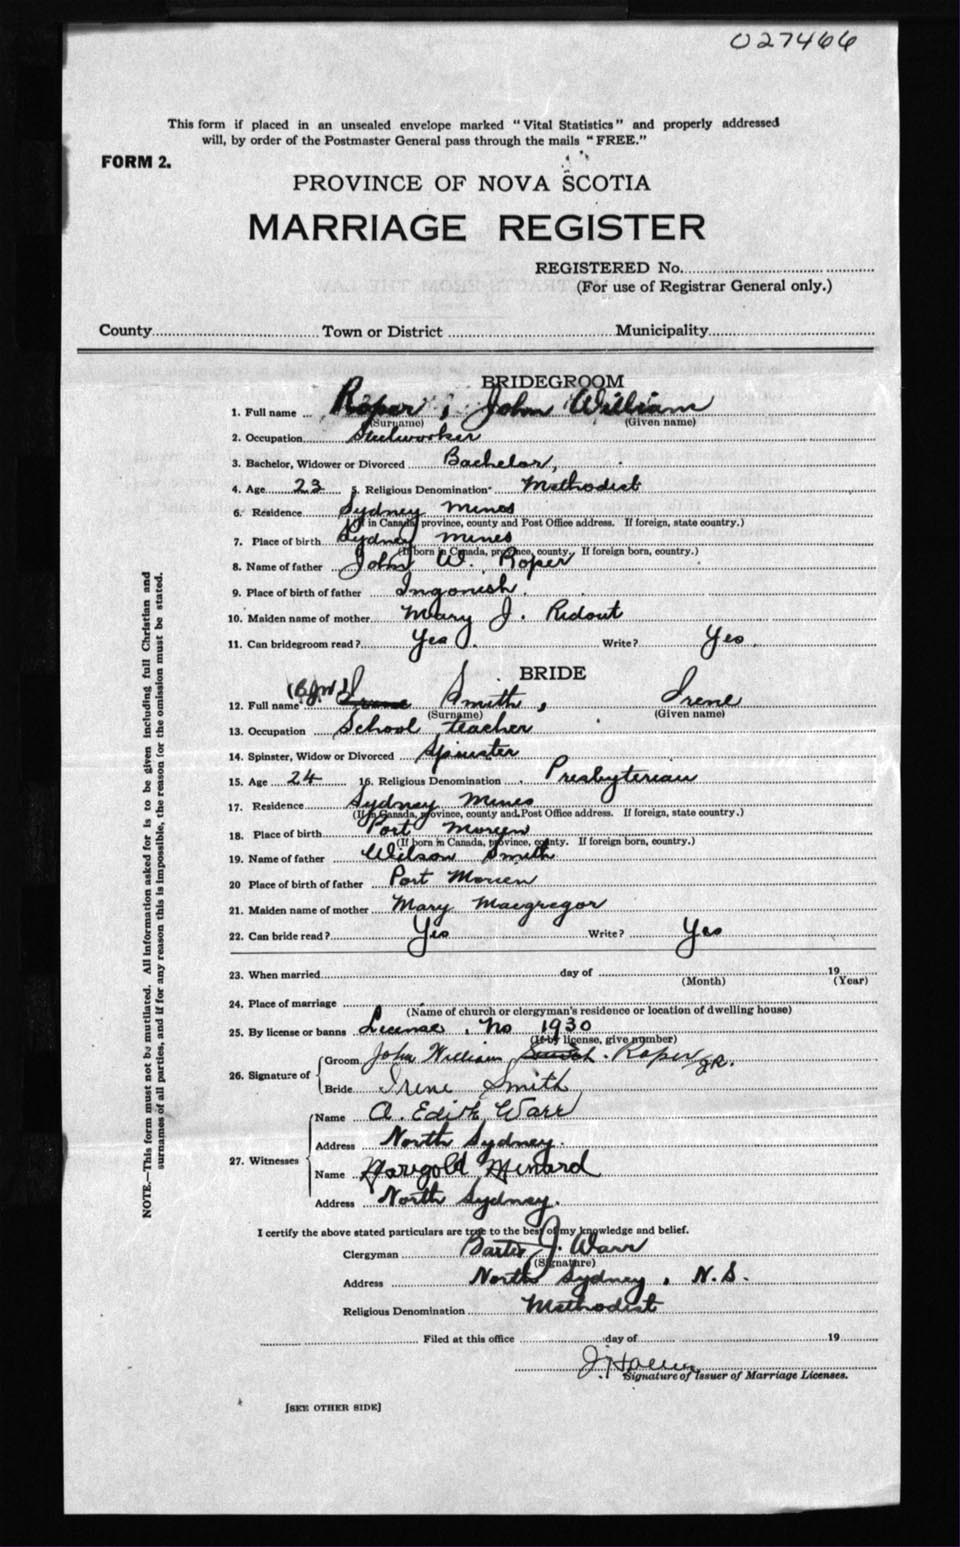 027466
This form if placed in an unsealed envelope marked "Vital Statistics" and properly addressed
will, by order of the Postmaster General pass through the mails "FREE."
FORM 2.
PROVINCE OF NOVA SCOTIA
MARRIAGE REGISTER
REGISTERED No.
(For use of Registrar General only.)
County Town or District Municipality
BRIDEGROOM
1. Full name Roper, John William
(Surname) (Given name)
2. Occupation Steelworker
3. Bachelor, Widower or Divorced Bachelor,
4. Age 23 5. Religious Denomination Methodist
6. Residence Sydney Mines
(If in Canada, province, county and Post Office address. If foreign, state country.)
7. Place of birth Sydney Mines
(If born in Canada, province, county. If foreign born, country.)
8. Name of father John W. Roper
9. Place of birth of father Ingonish.
10. Maiden name of mother Mary J. Ridout
11. Can bridegroom read? Yes. Write? Yes.
BRIDE
(B.J.W.)
12. Full name Irene Smith, Irene
(Surname) (Given name)
13. Occupation School teacher
14. Spinster, Widow or Divorced Spinster
15. Age 24 16. Religious Denomination Presbyterian
17. Residence Sydney Mines
(If in Canada, province, county and Post Office address. If foreign, state country.)
18. Place of birth Port Morien
(If born in Canada, province, county. If foreign born, country.)
19. Name of father Wilson Smith
20 Place of birth of father Port Morien
21. Maiden name of mother Mary Macgregor
22. Can bride read? Yes Write? Yes
23. When married day of 19
(Month) (Year)
24. Place of marriage
(Name of church or clergyman's residence or location of dwelling house)
25. By license or banns License. No 1930
(If by license, give number)
26. Signature of Groom John William Roper JR.
Bride Irene Smith
27. Witnesses Name A. Edith Warr
Address North Sydney.
Name Marigold Menard
Address North Sydney.
I certify the above stated particulars are true to the best of my knowledge and belief.
Clergyman J. Warr
(Signature)
Address North Sydney, N.S.
Religious Denomination Methodist
Filed at this office day of 19
Signature of Issuer of Marriage Licenses.
[SEE OTHER SIDE]
NOTE.—This form must not be mutilated. All information asked for is to be given including full Christian and
surnames of all parties, and if for any reason this is impossible, the reason for the omission must be stated.